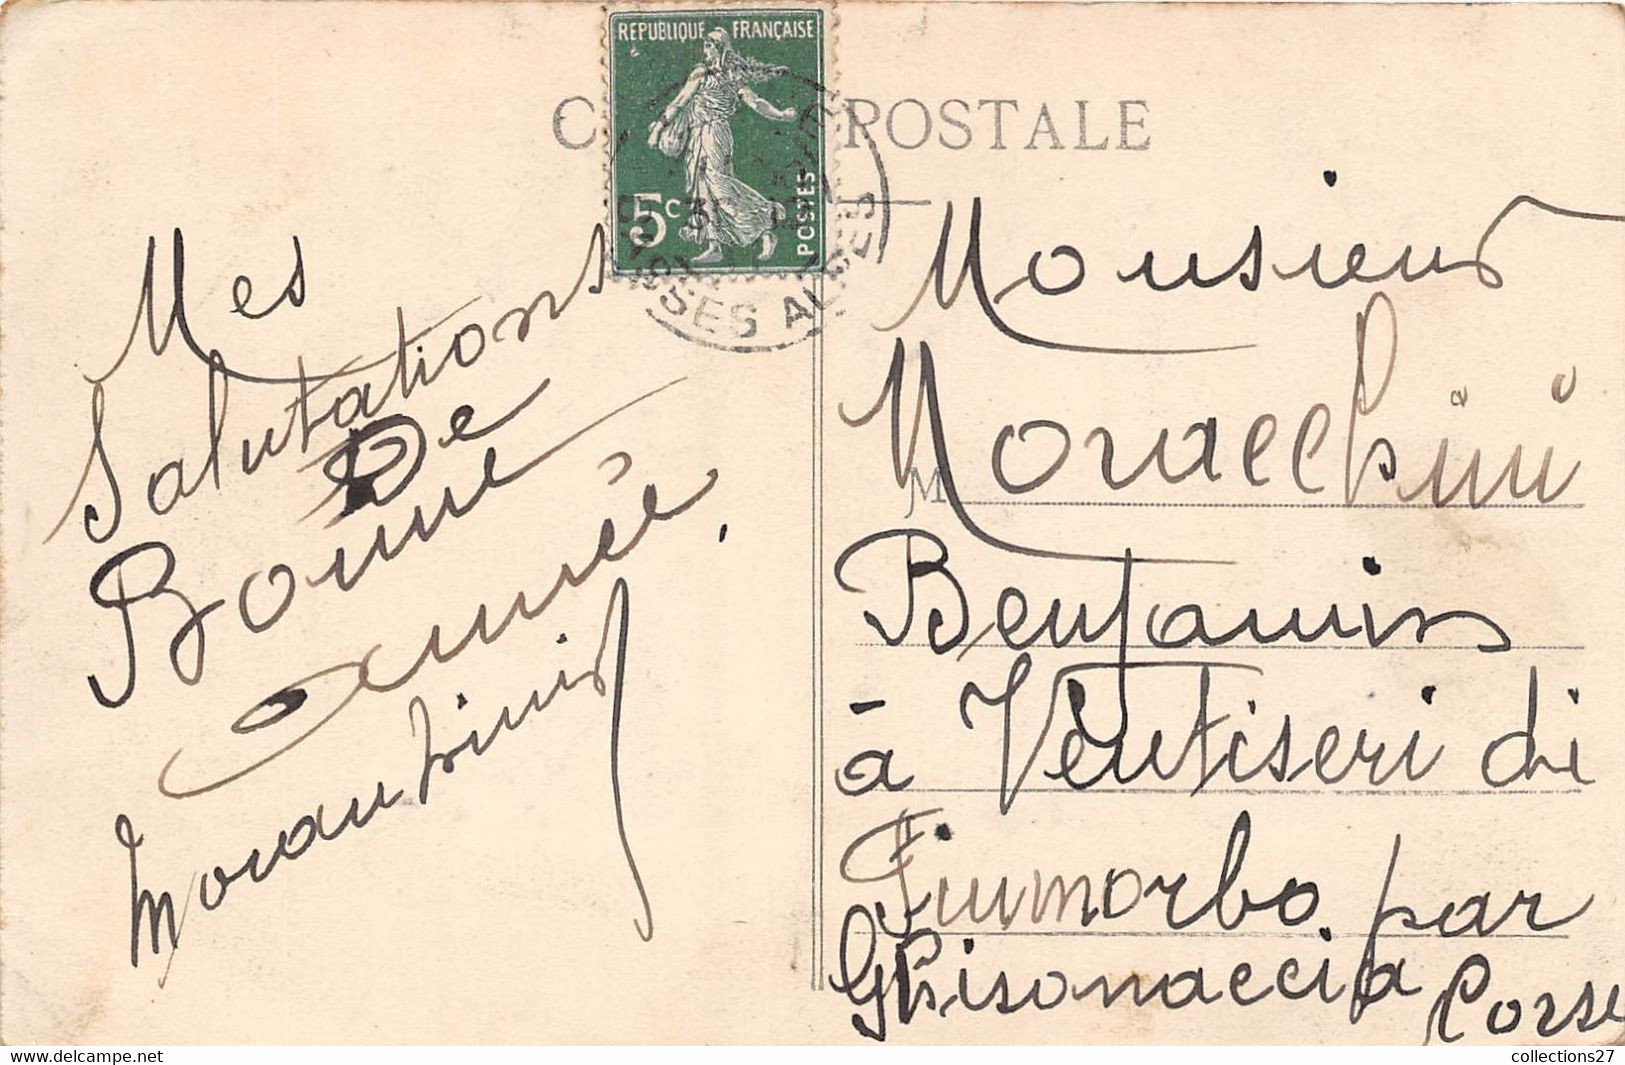 REPUBLIQUE FRANÇAISE
5c
POSTES
POSTALE
SES ALPES
Mes
Salutations
De
Bonne
Année,
Monsieur
M
Moracchini
Benjamin
à Ventiseri di
Fiumorbo par
Ghisonaccia Corse
collections27